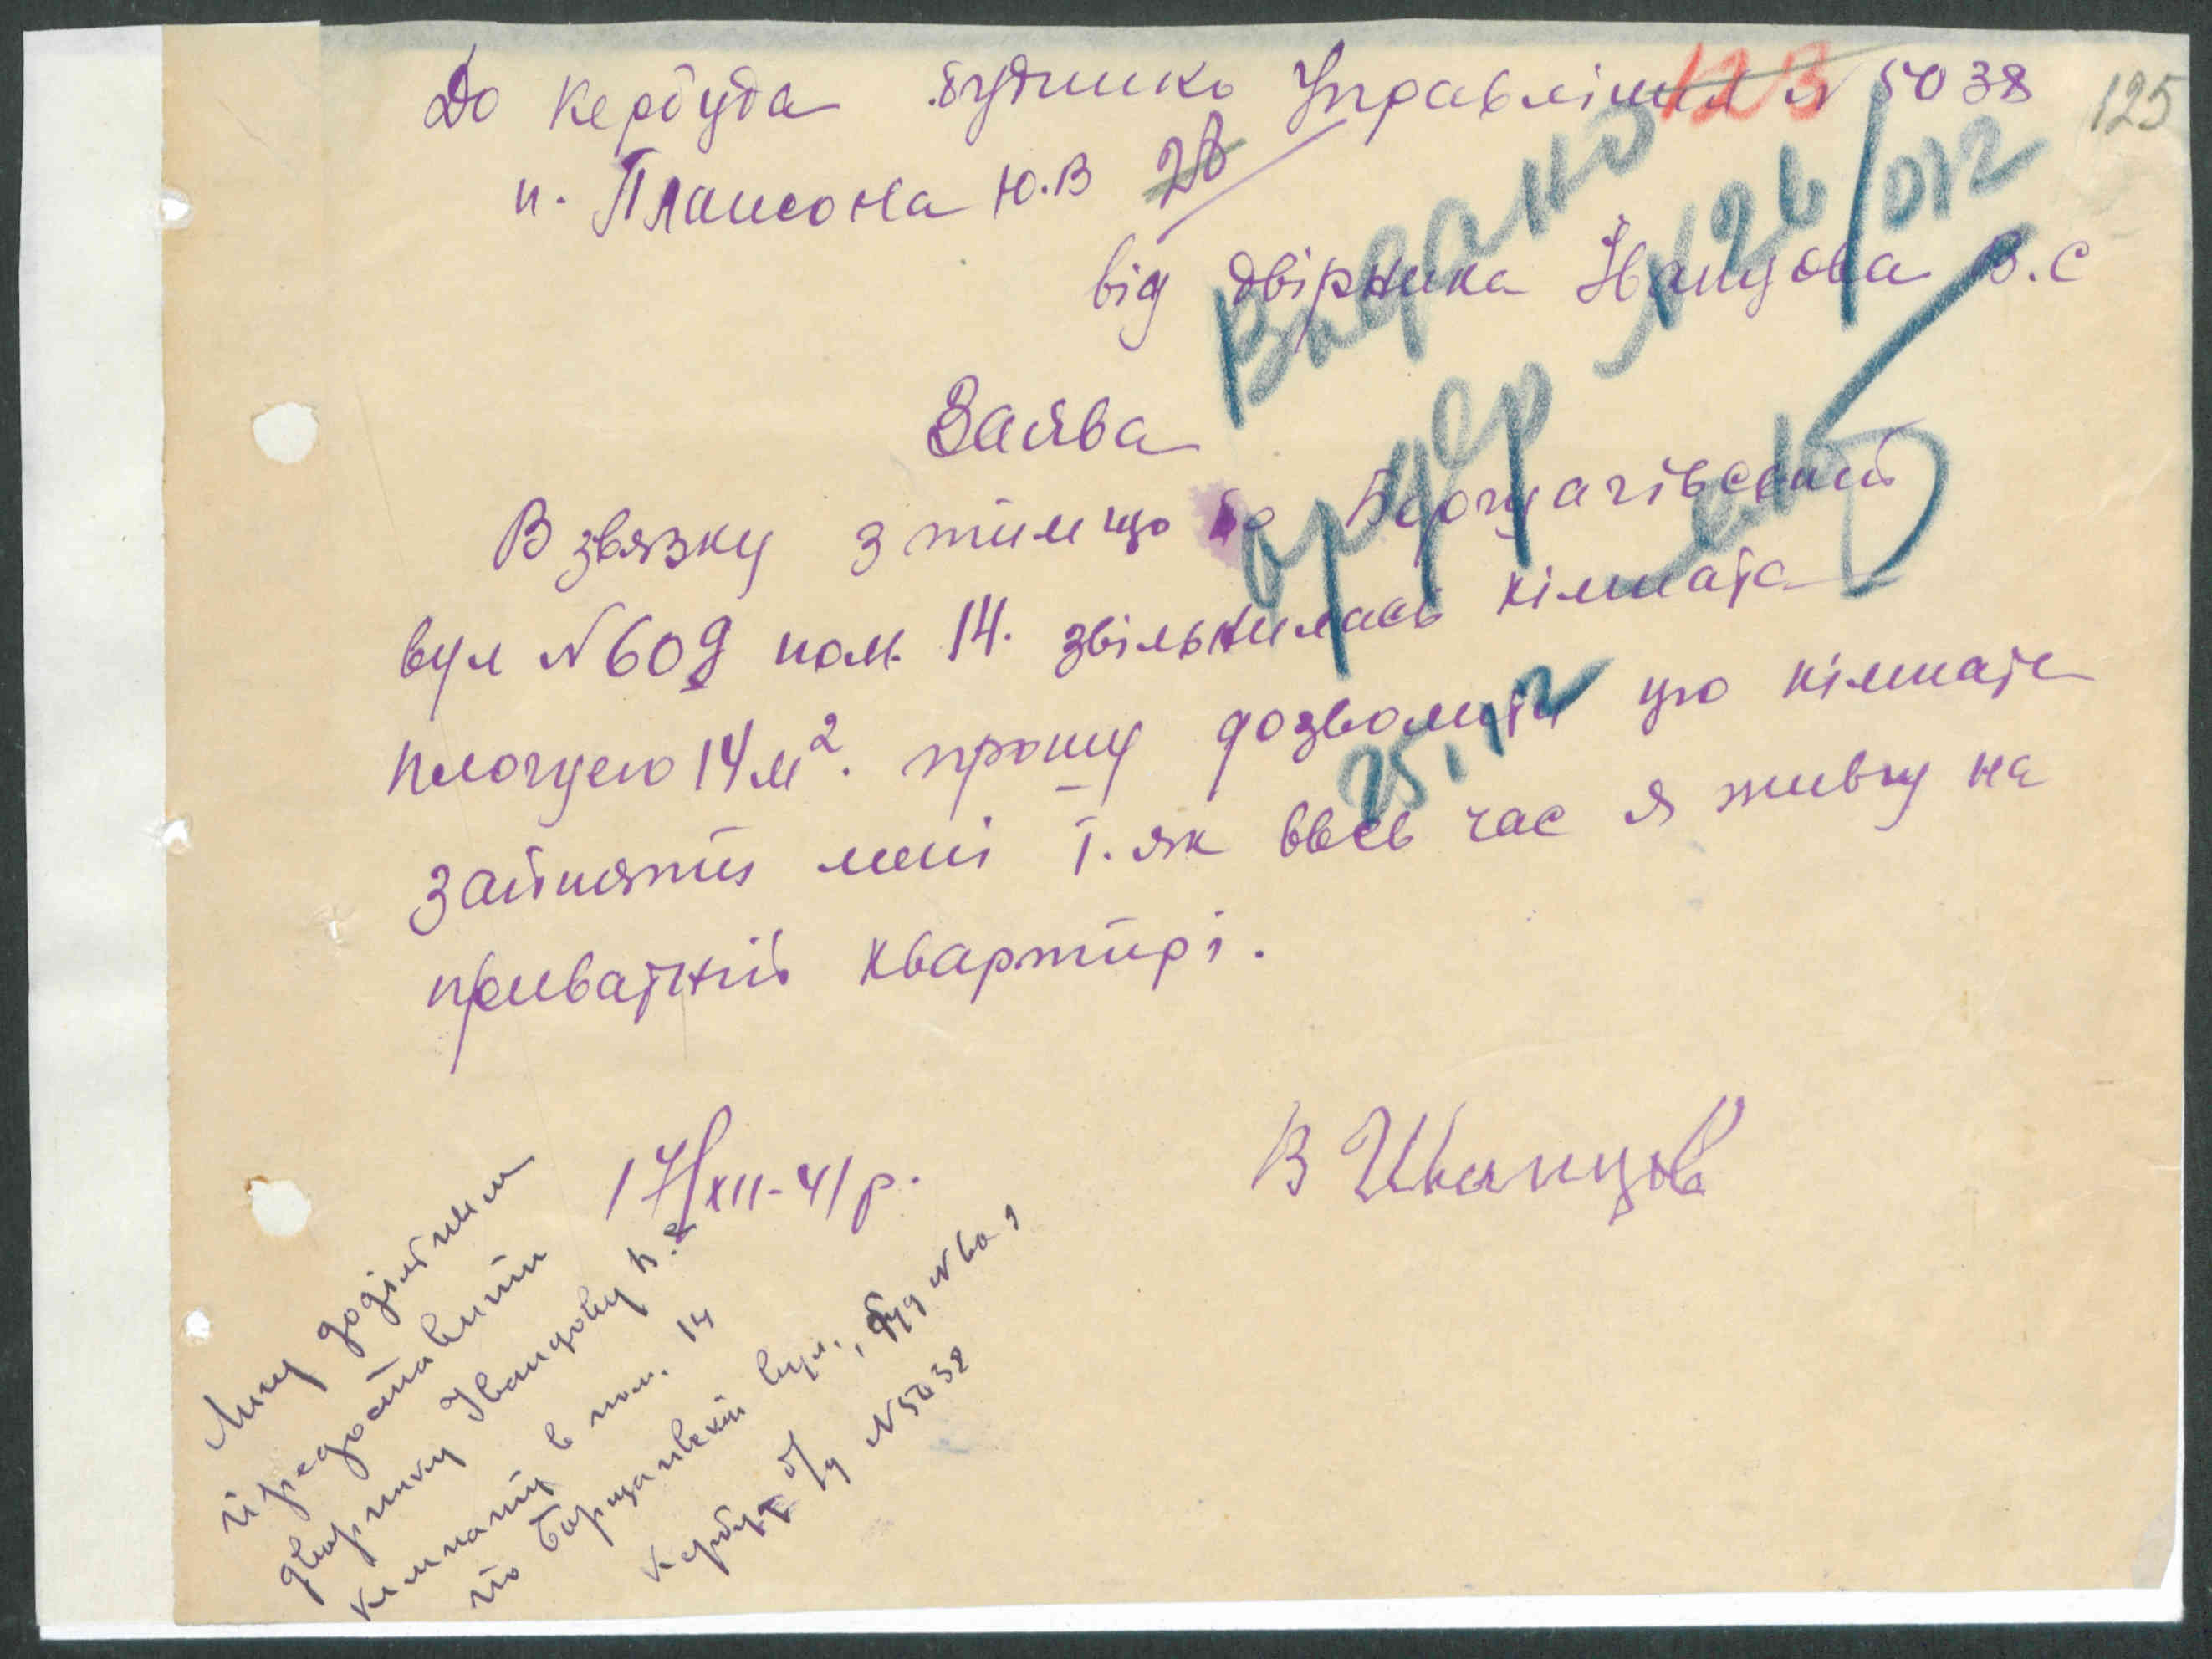 До Кербуда будинко Управління № 5038
п. Плансона Ю.В 28
123
125
від двірника Іванцова В.С
Видано
ордер № 126/012
25.12
Заява
В звязку з тим що по Борщагівський
вул № 60д пом. 14. звільнилась кімната
площею 14 м². прошу дозволити цю кімнату
зайняти мені т. як ввесь час я живу на
приватній квартирі.
17/XII-41р.
В Иванцов
предоставити
дворнику Іванцову В.С
кімнату в пом. 14
по Борщагівській вул., буд № 60д
Кербуд б/у № 5038